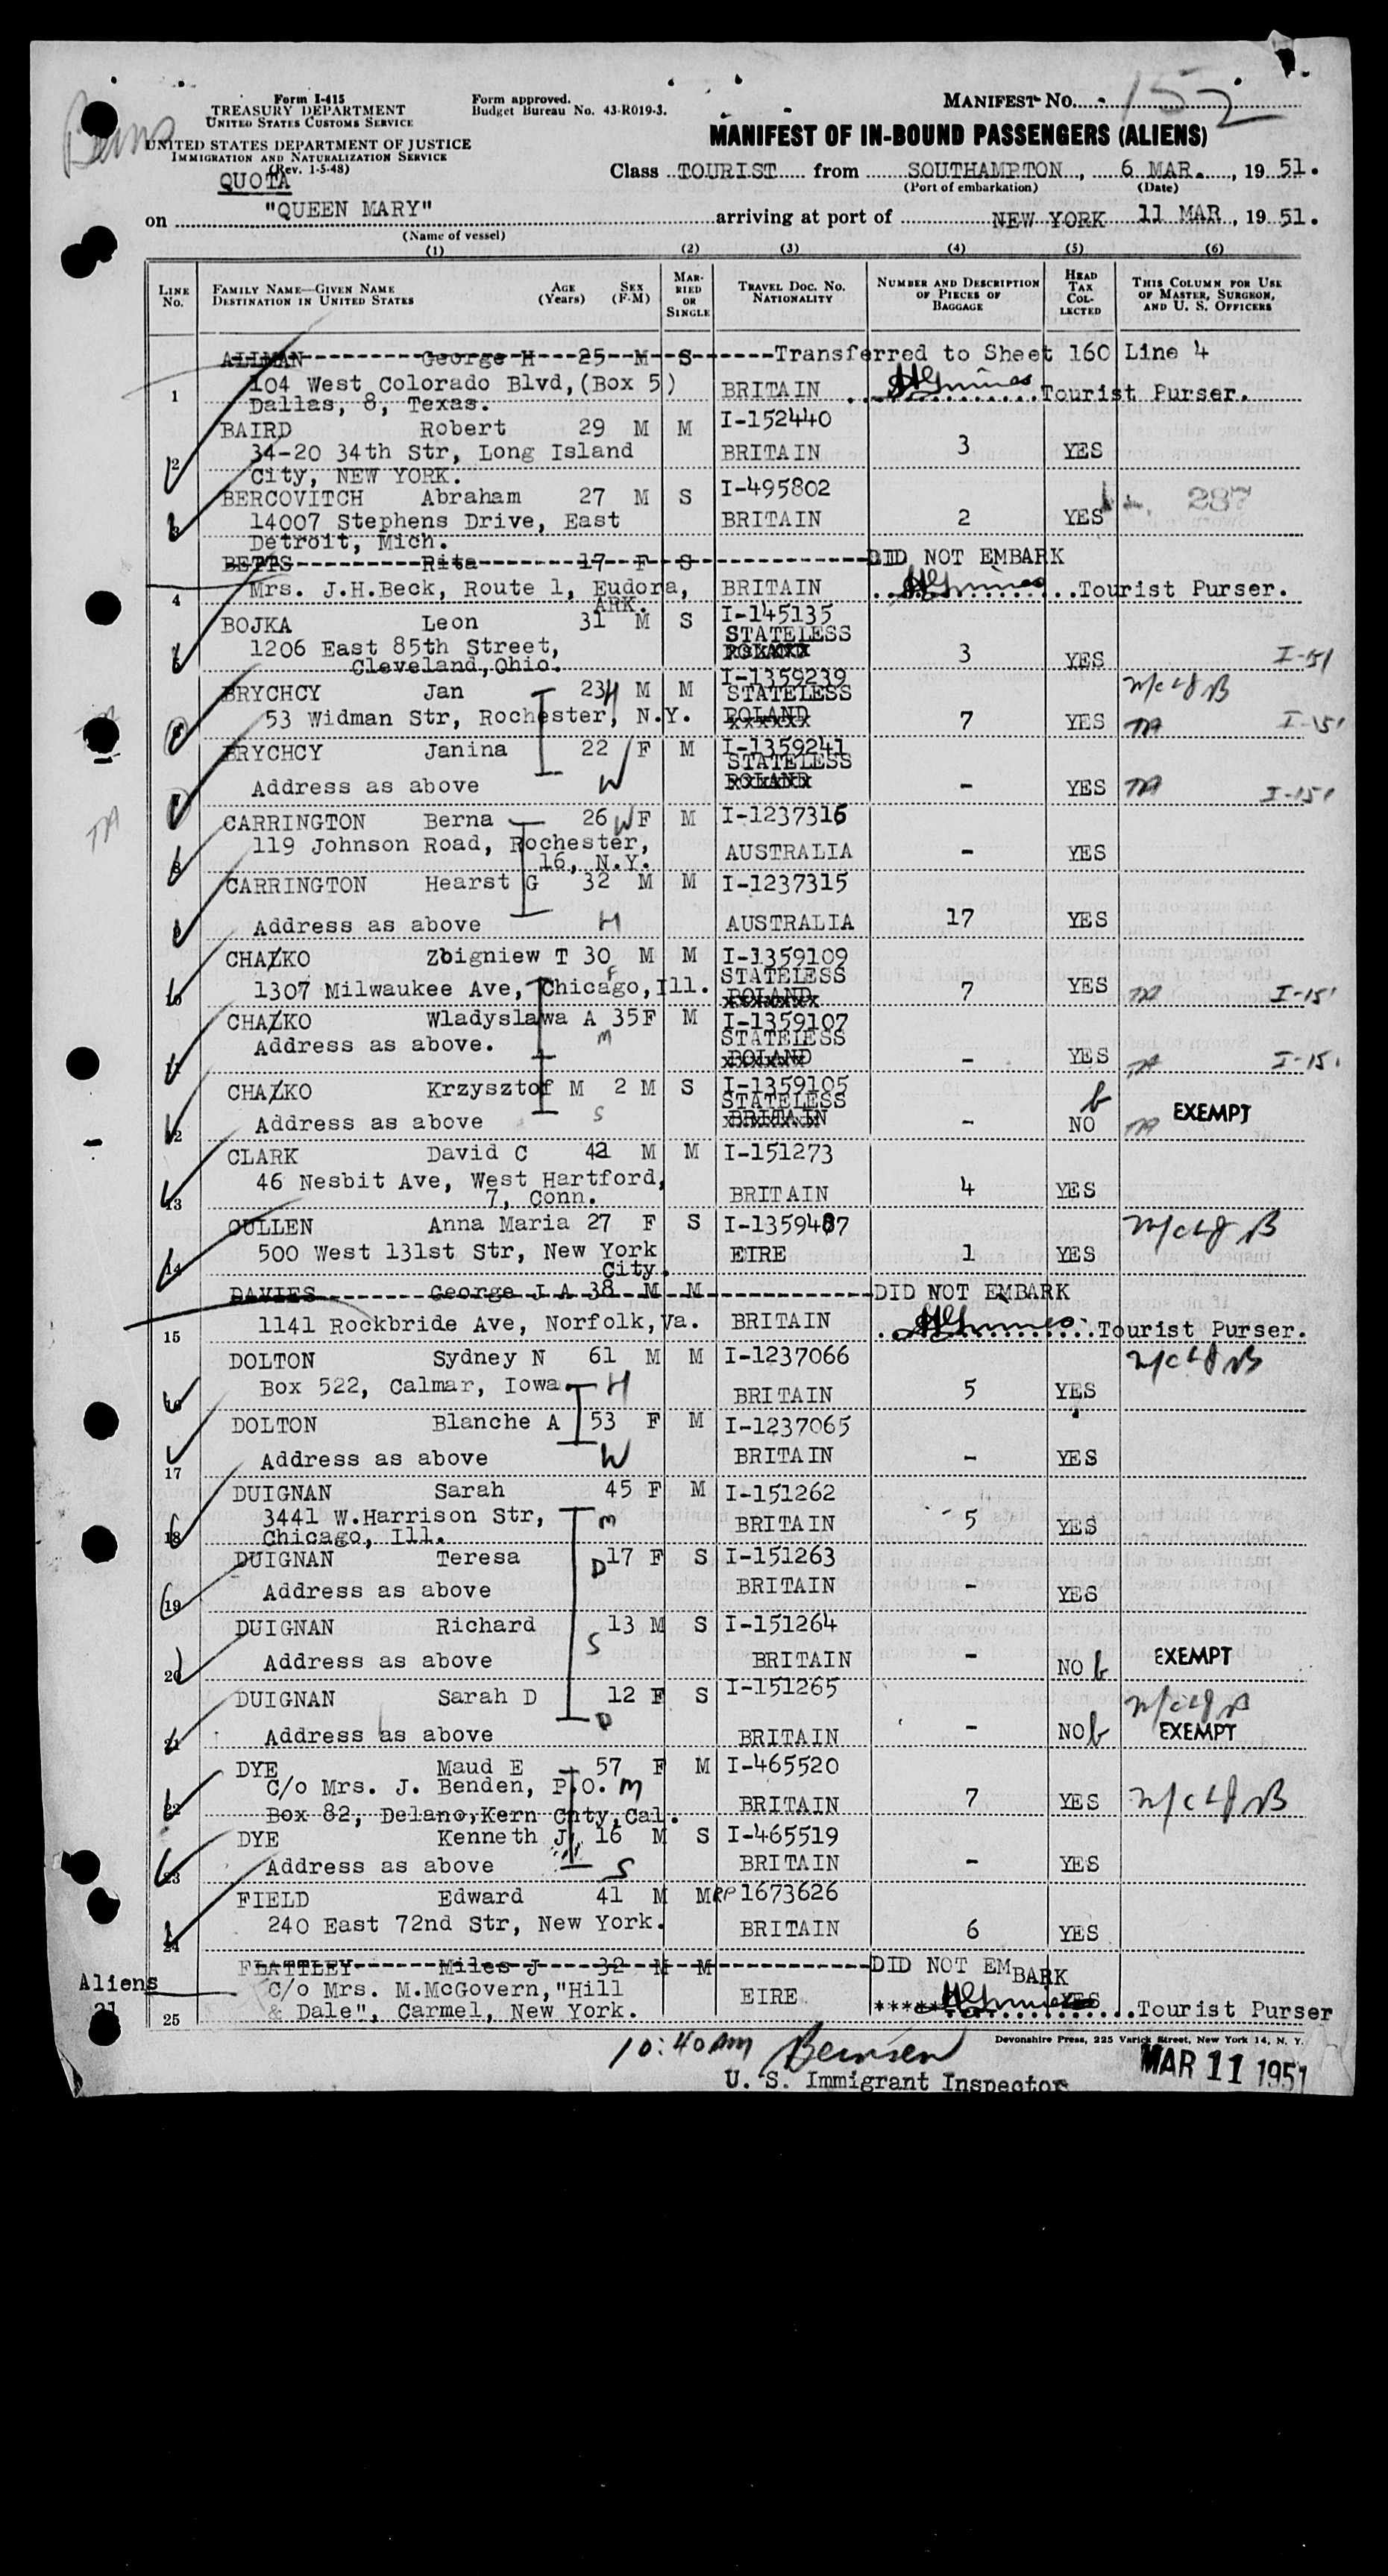 Form I-415
TREASURY DEPARTMENT
UNITED STATES CUSTOMS SERVICE
UNITED STATES DEPARTMENT OF JUSTICE
IMMIGRATION AND NATURALIZATION SERVICE
(Rev. 1-5-48)
QUOTA
Form approved.
Budget Bureau No. 43-R019-3.
MANIFEST NO. 152
MANIFEST OF IN-BOUND PASSENGERS (ALIENS)
Class TOURIST from SOUTHAMPTON, 6 MAR., 1951.
(Port of embarkation) (Date)
on "QUEEN MARY" arriving at port of NEW YORK 11 MAR, 1951.
(Name of vessel)
(1) (2) (3) (4) (5) (6)
LINE No. FAMILY NAME—GIVEN NAME DESTINATION IN UNITED STATES AGE (Years) SEX (F-M) MARRIED OR SINGLE TRAVEL DOC. NO. NATIONALITY NUMBER AND DESCRIPTION OF PIECES OF BAGGAGE HEAD TAX COLLECTED THIS COLUMN FOR USE OF MASTER, SURGEON, AND U. S. OFFICERS
ALLMAN George H 25 M S Transferred to Sheet 160 Line 4
1 104 West Colorado Blvd,(Box 5) BRITAIN Tourist Purser.
Dallas, 8, Texas.
BAIRD Robert 29 M M I-152440
2 34-20 34th Str, Long Island BRITAIN 3 YES
City, NEW YORK.
BERCOVITCH Abraham 27 M S I-495802 287
3 14007 Stephens Drive, East BRITAIN 2 YES
Detroit, Mich.
BETTS Rita 17 F S DID NOT EMBARK
4 Mrs. J.H.Beck, Route 1, Eudora, BRITAIN Tourist Purser.
ARK.
BOJKA Leon 31 M S I-145135
STATELESS
5 1206 East 85th Street, POLAND 3 YES I-151
Cleveland,Ohio.
BRYCHCY Jan 23 H M M I-1359239
STATELESS
6 53 Widman Str, Rochester, N.Y. POLAND 7 YES I-151
BRYCHCY Janina 22 F M I-1359241
STATELESS
7 Address as above W POLAND - YES I-151
CARRINGTON Berna 26 W F M I-1237316
8 119 Johnson Road, Rochester, AUSTRALIA - YES
16, N.Y.
CARRINGTON Hearst G 32 M M I-1237315
9 Address as above H AUSTRALIA 17 YES
CHALKO Zbigniew T 30 M M I-1359109
F STATELESS
10 1307 Milwaukee Ave, Chicago,Ill. POLAND 7 YES I-151
CHALKO Wladyslawa A 35 F M I-1359107
STATELESS
11 Address as above. M POLAND - YES I-151
CHALKO Krzysztof M 2 M S I-1359105
STATELESS
12 Address as above S BRITAIN - NO EXEMPT
CLARK David C 42 M M I-151273
13 46 Nesbit Ave, West Hartford, BRITAIN 4 YES
7, Conn.
CULLEN Anna Maria 27 F S I-1359487
14 500 West 131st Str, New York EIRE 1 YES
City.
DAVIES George J A 38 M M DID NOT EMBARK
15 1141 Rockbride Ave, Norfolk,Va. BRITAIN Tourist Purser.
DOLTON Sydney N 61 M M I-1237066
16 Box 522, Calmar, Iowa H BRITAIN 5 YES
DOLTON Blanche A 53 F M I-1237065
17 Address as above W BRITAIN - YES
DUIGNAN Sarah 45 F M I-151262
18 3441 W.Harrison Str, M BRITAIN 5 YES
Chicago, Ill.
DUIGNAN Teresa D 17 F S I-151263
19 Address as above BRITAIN - YES
DUIGNAN Richard 13 M S I-151264
20 Address as above S BRITAIN - NO EXEMPT
DUIGNAN Sarah D 12 F S I-151265
21 Address as above D BRITAIN - NO EXEMPT
DYE Maud E 57 F M I-465520
22 C/o Mrs. J. Benden, P.O. M BRITAIN 7 YES
Box 82, Delano,Kern Cnty,Cal.
DYE Kenneth J 16 M S I-465519
23 Address as above S BRITAIN - YES
FIELD Edward 41 M M RP 1673626
24 240 East 72nd Str, New York. BRITAIN 6 YES
FLATTLEY Miles J 32 M M DID NOT EMBARK
C/o Mrs. M.McGovern,"Hill EIRE YES
25 & Dale", Carmel, New York. Tourist Purser
Aliens
21
Devonshire Press, 225 Varick Street, New York 14, N. Y.
10:40 AM
U. S. Immigrant Inspector
MAR 11 1951